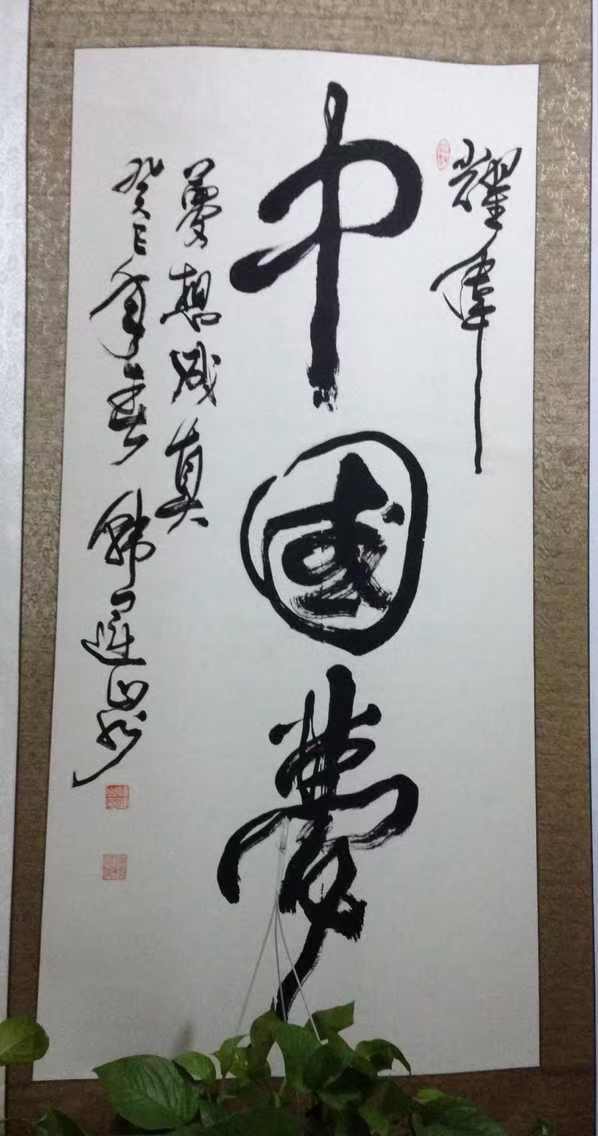 耀华
中國夢
夢想成真
癸巳年春 韩運